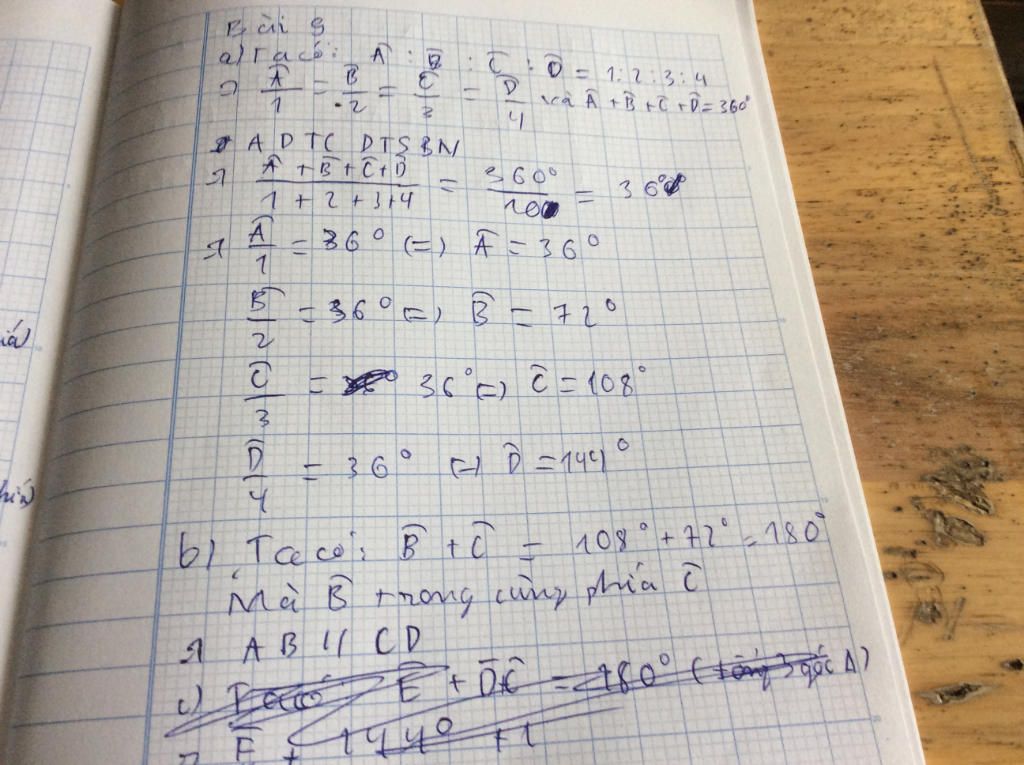 Bài 9
a) Ta có: Â : B̂ : Ĉ : D̂ = 1:2:3:4
=> Â/1 = B̂/2 = Ĉ/3 = D̂/4 và Â + B̂ + Ĉ + D̂ = 360°
ADTC DTSBN
=> (Â + B̂ + Ĉ + D̂)/(1 + 2 + 3 + 4) = 360°/10 = 36°
=> Â/1 = 36° (=) Â = 36°
B̂/2 = 36° (=) B̂ = 72°
Ĉ/3 = 36° (=) Ĉ = 108°
D̂/4 = 36° (=) D̂ = 144°
b) Ta có: B̂ + Ĉ = 108° + 72° = 180°
Mà B̂ trong cùng phía Ĉ
=> AB // CD
c) Ta có Ê + D̂Ĉ = 180° (tổng 3 góc Δ)
=> Ê + 144° + 1